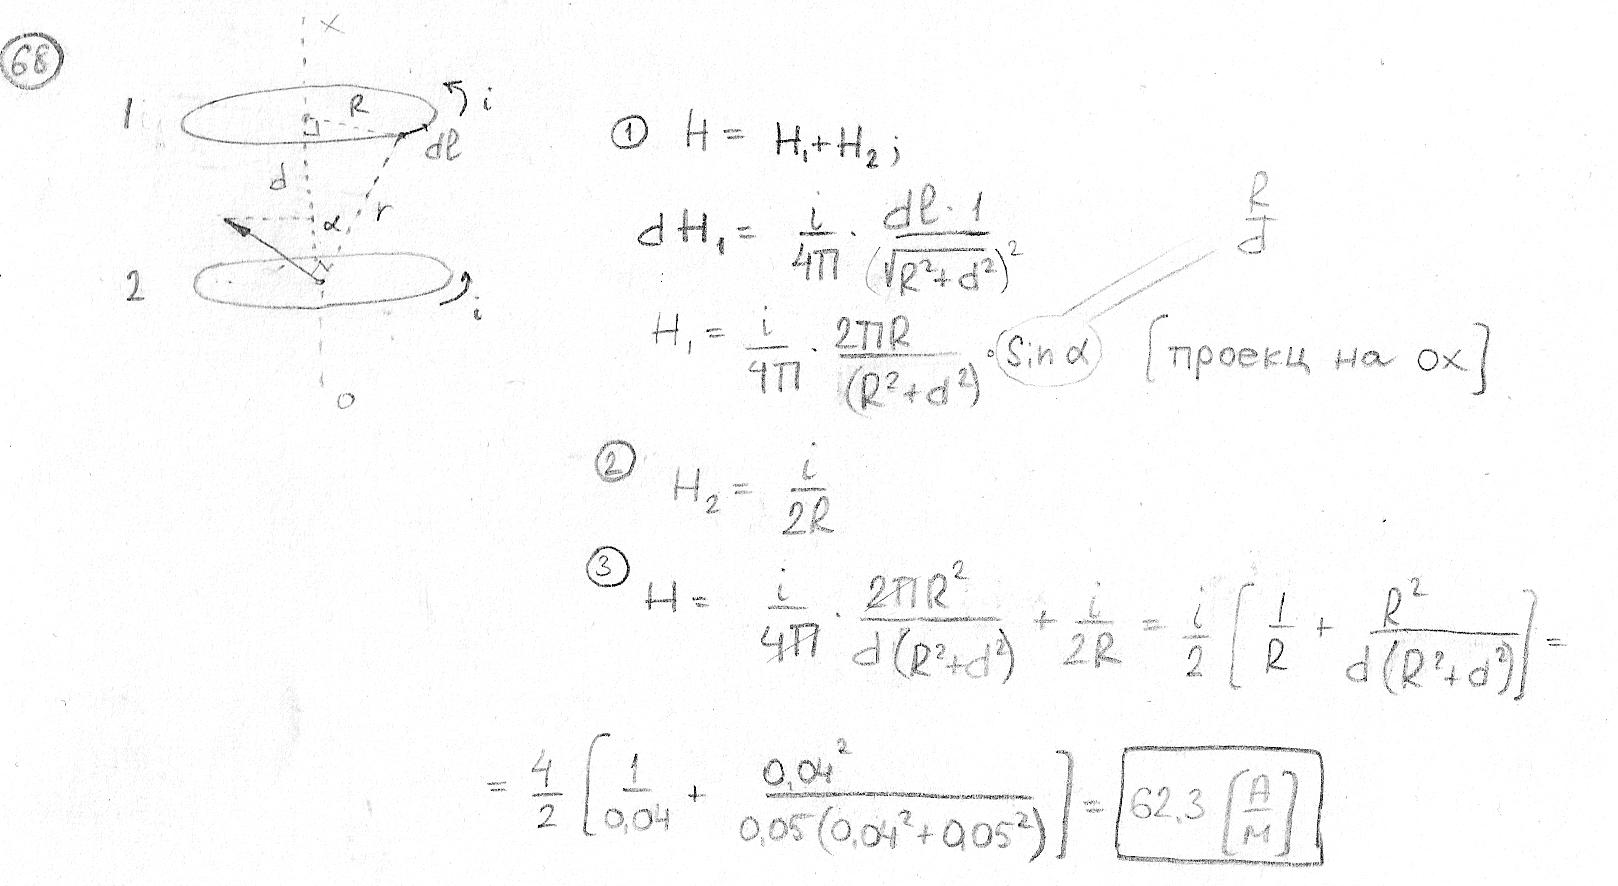 68
x
1 R i
dl
d
α r
2 i
o
① H = H₁+H₂;
dH₁ = i/4π · dl·1/(√R²+d²)²
R/d
H₁ = i/4π · 2πR/(R²+d²) · Sin α [проекц на ox]
② H₂ = i/2R
③ H = i/4π · 2πR²/d(R²+d²) + i/2R = i/2 [1/R + R²/d(R²+d²)] =
= 4/2 [1/0,04 + 0,04²/0,05(0,04²+0,05²)] = 62,3 [А/м]